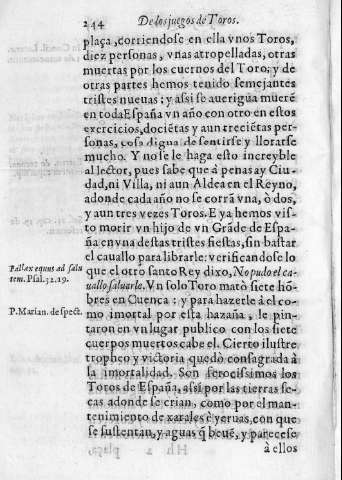 244
De los juegos de Toros.
plaça, corriendose en ella vnos Toros,
diez personas, vnas atropelladas, otras
muertas por los cuernos del Toro, y de
otras partes hemos tenido semejantes
tristes nueuas; y assi se aueriguà muerē
en toda España vn año con otro en estos
exercicios, dociētas y aun trecietas per-
sonas, cosa digna de sentirse y llorarse
mucho. Y no se le haga esto increyble
al lector, pues sabe que à penas ay Ciu-
dad, ni Villa, ni aun Aldea en el Reyno,
adonde cada año no se corrā vna, ò dos,
y aun tres vezes Toros. E ya hemos vis-
to morir vn hijo de vn Grāde de Espa-
ña en vna destas tristes fiestas, sin bastar
el cauallo para librarle: verificandose lo
que el otro santo Rey dixo, No pudo el ca-
uallo saluarle. Vn solo Toro matò siete hō-
bres en Cuenca: y para hazerle à el co-
mo imortal por esta hazaña, le pin-
taron en vn lugar publico con los siete
cuerpos muertos cabe el. Cierto ilustre
tropheo y victoria quedò consagrada à
la imortalidad. Son ferocissimos los
Toros de España, assi por las tierras se-
cas adonde se crian, como por el man-
tenimiento de xarales è yeruas, con que
se sustentan, y aguas q̄ beuē, y parecese
à ellos
Fallax equus ad salu
tem. Psal. 32. 19.
P. Marian. de spect.